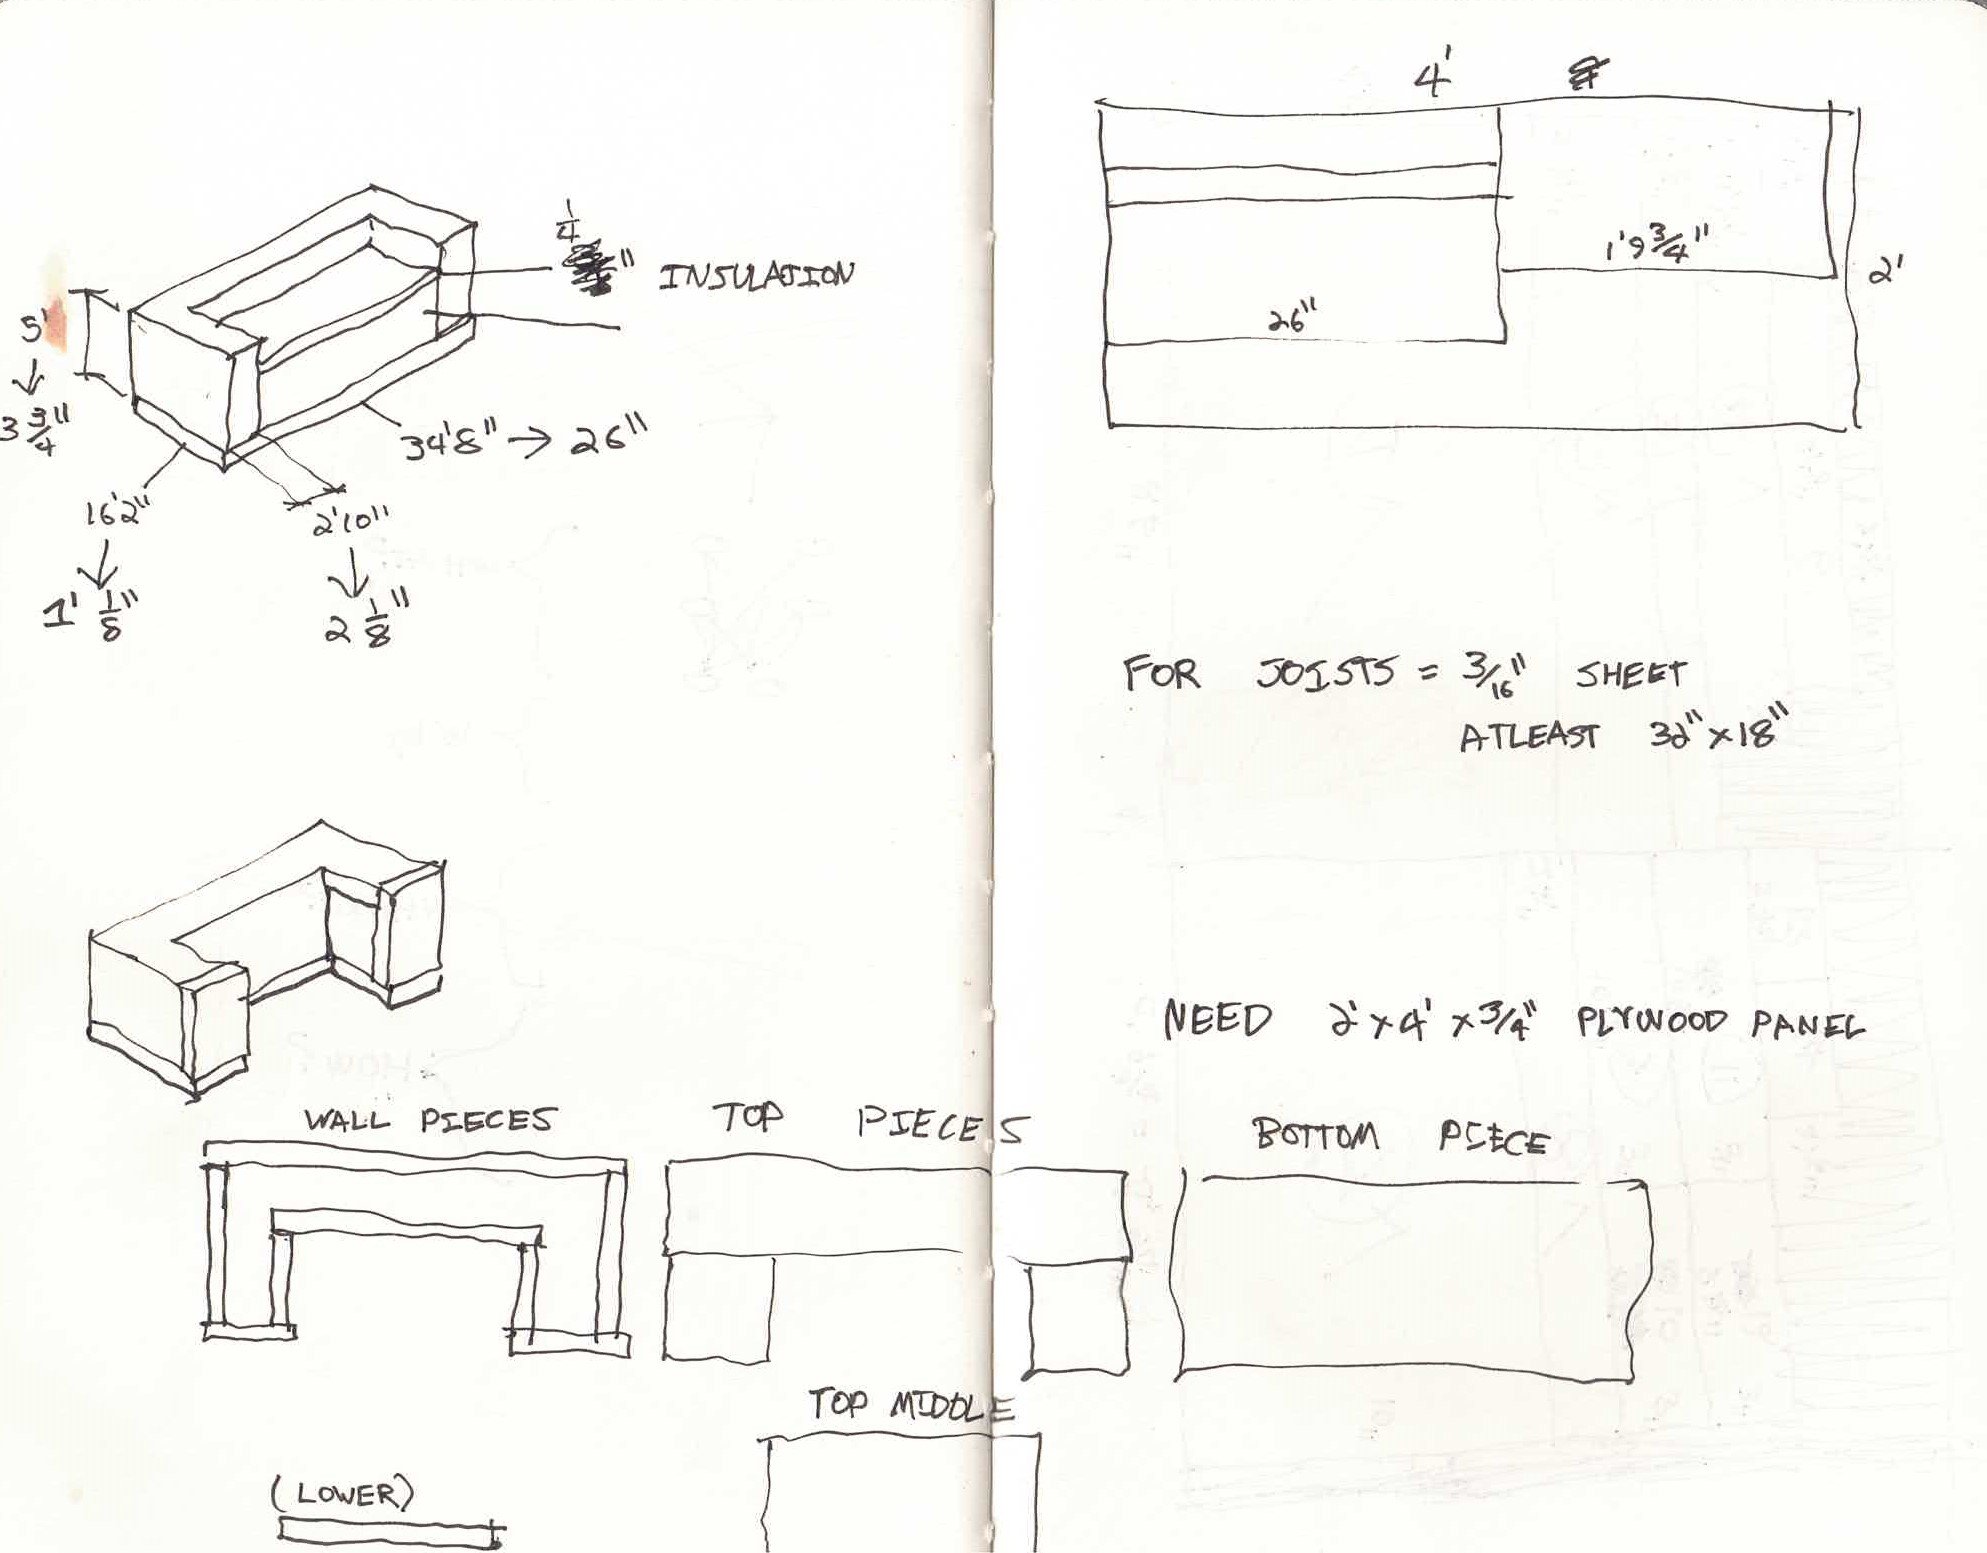 1/4" INSULATION
5'
3 3/4"
34'8" → 26"
16'2"
1' 1/8"
2'10"
2 1/8"
4'
1'9 3/4"
2'
26"
FOR JOISTS = 3/16" SHEET
ATLEAST 32" x 18"
NEED 2' x 4' x 3/4" PLYWOOD PANEL
WALL PIECES
TOP PIECES
BOTTOM PIECE
TOP MIDDLE
(LOWER)